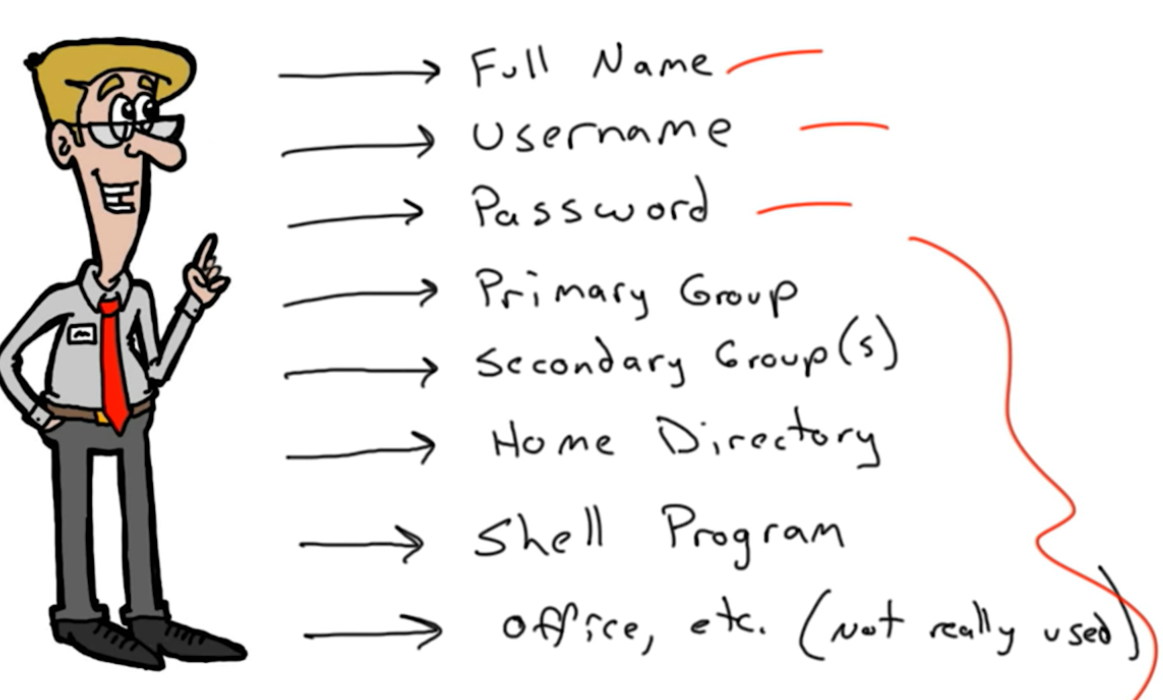 Full Name
Username
Password
Primary Group
Secondary Group(s)
Home Directory
Shell Program
Office, etc. (not really used)